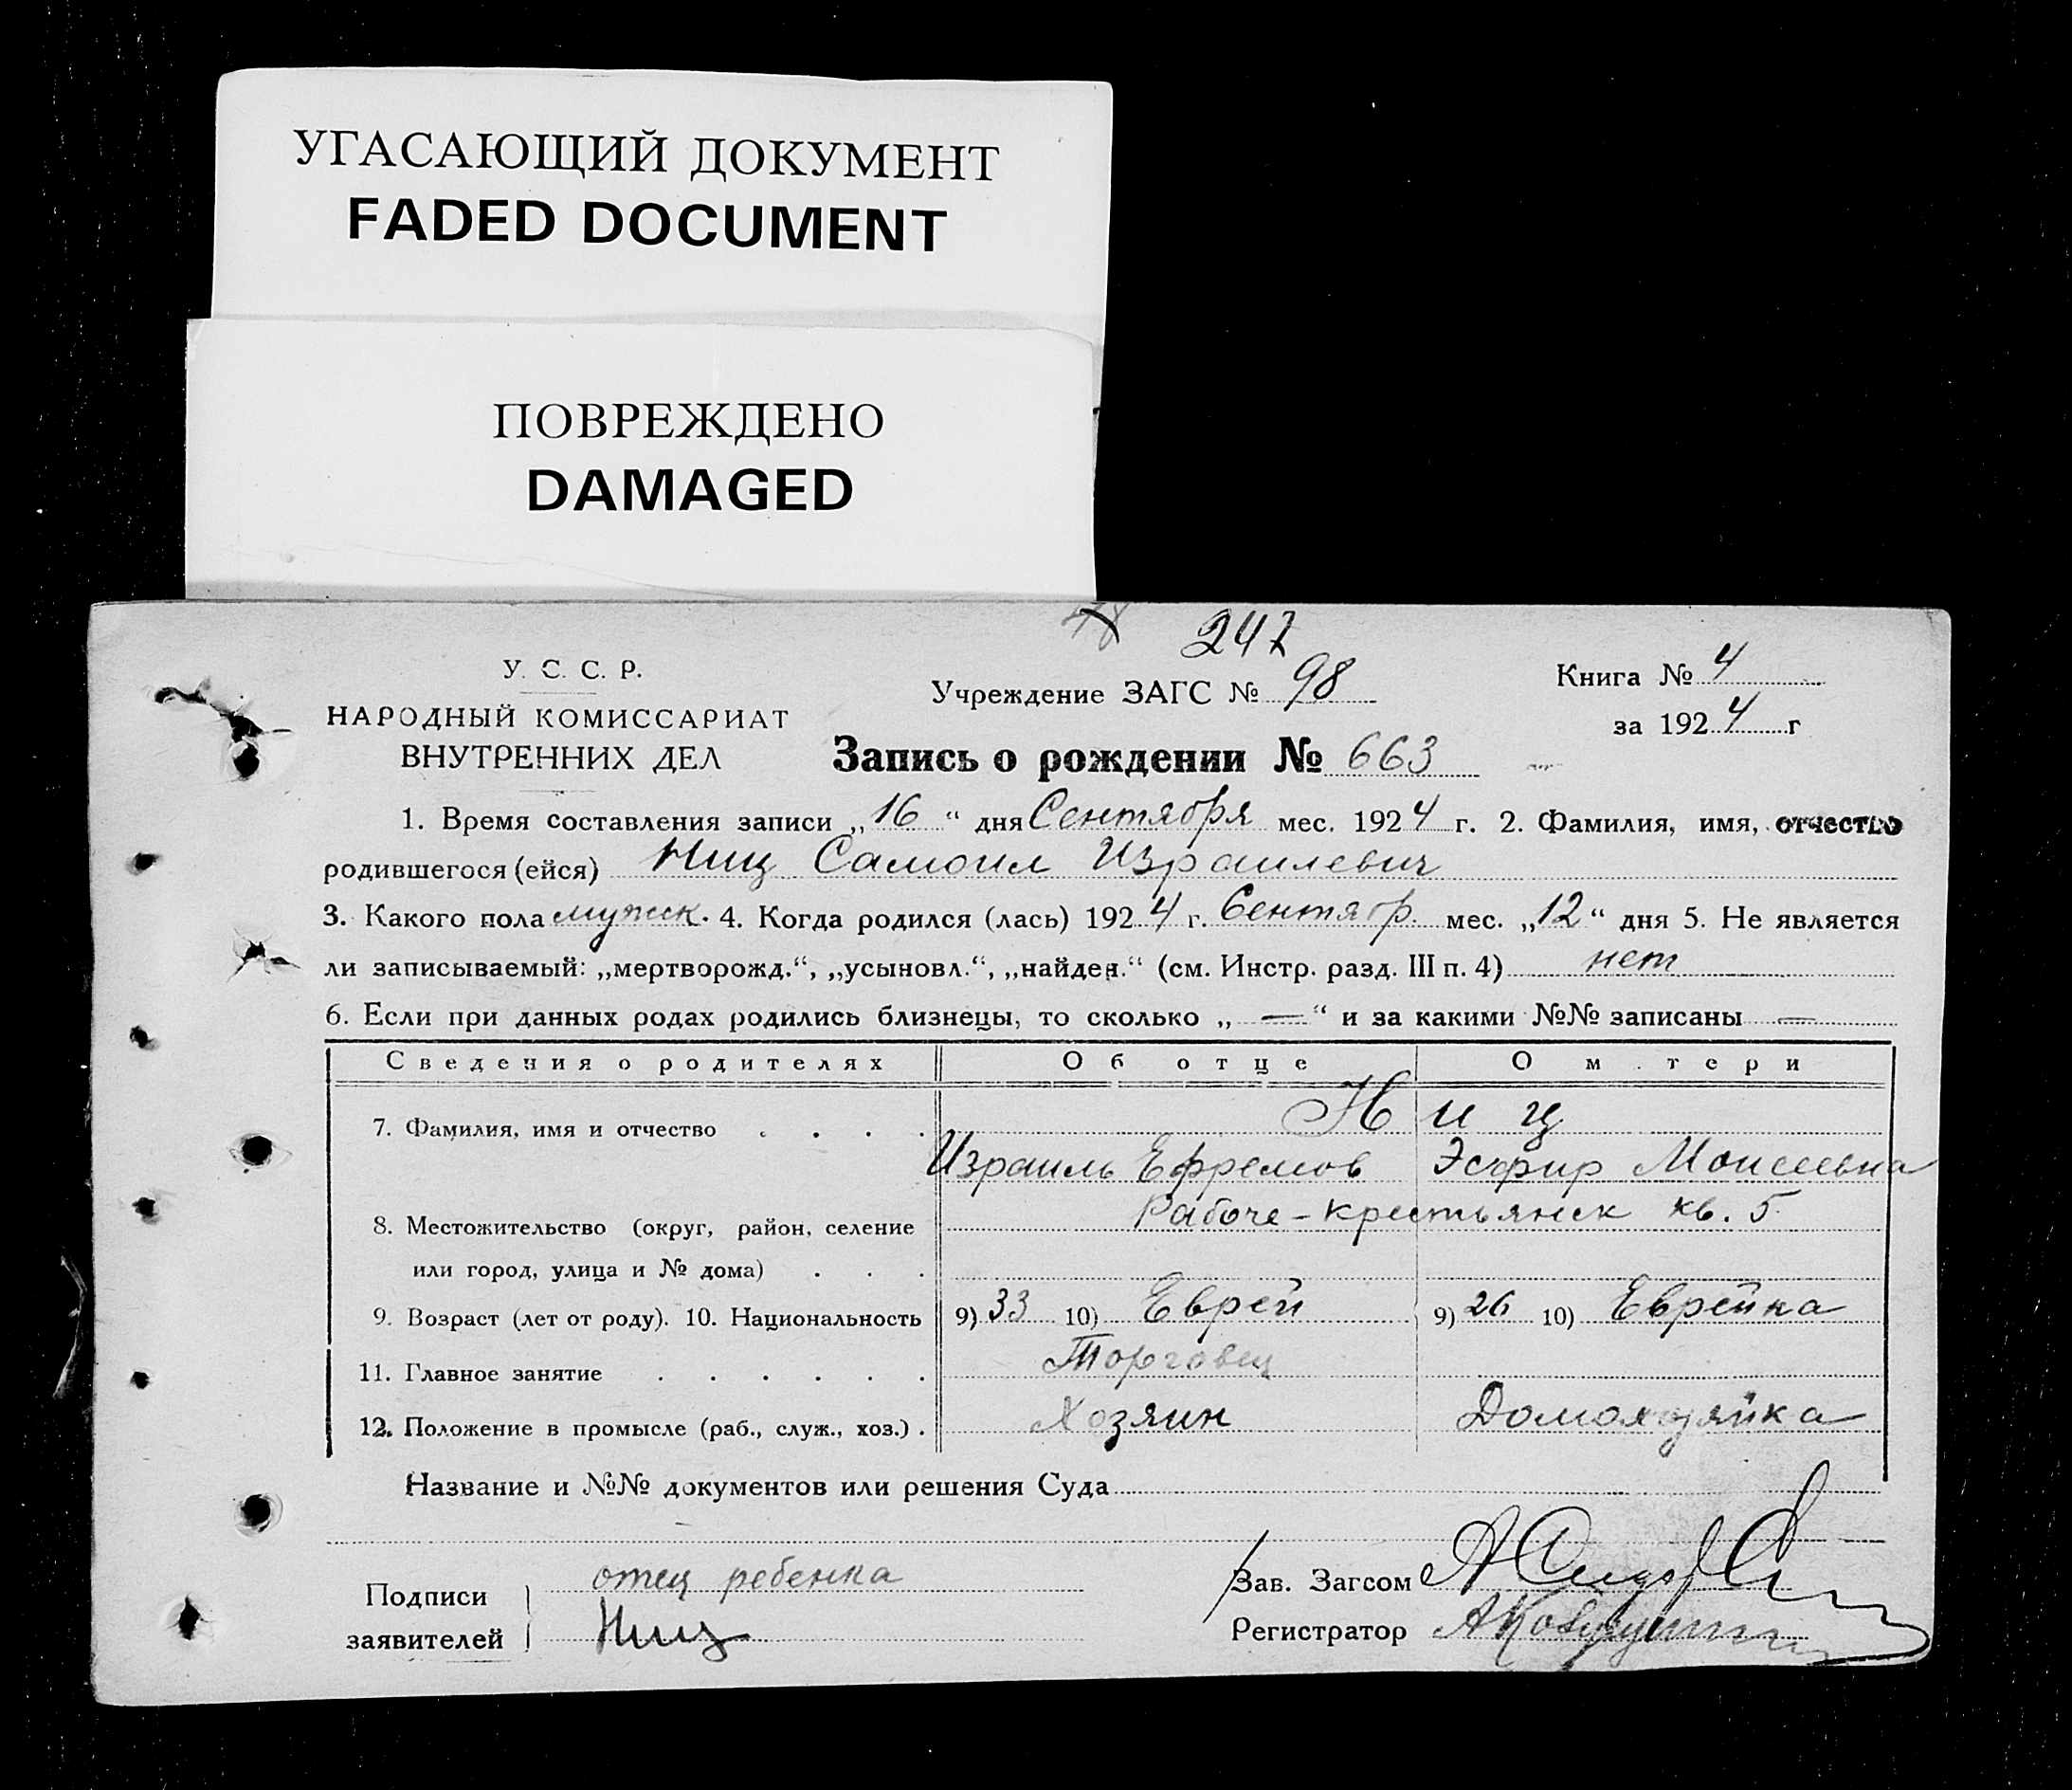 УГАСАЮЩИЙ ДОКУМЕНТ
FADED DOCUMENT
ПОВРЕЖДЕНО
DAMAGED
247
У. С. С. Р.
НАРОДНЫЙ КОМИССАРИАТ
ВНУТРЕННИХ ДЕЛ
Учреждение ЗАГС № 98
Книга № 4
за 1924 г
Запись о рождении № 663
1. Время составления записи „16“ дня Сентября мес. 1924 г. 2. Фамилия, имя, отчество
родившегося (ейся) Ниц Самоил Израилевич
3. Какого пола мужск. 4. Когда родился (лась) 1924 г. Сентябр. мес. „12“ дня 5. Не является
ли записываемый: „мертворожд.“, „усыновл.“, „найден.“ (см. Инстр. разд. III п. 4) нет
6. Если при данных родах родились близнецы, то сколько „ — “ и за какими №№ записаны —
Сведения о родителях Об отце О м тери
7. Фамилия, имя и отчество . . . . Ниц
Израиль Ефремов Эсфир Моисеевна
8. Местожительство (округ, район, селение Рабоче-крестьянск кв. 5
или город, улица и № дома) . . .
9. Возраст (лет от роду). 10. Национальность 9) 33 10) Еврей 9) 26 10) Еврейка
11. Главное занятие . . . . . . Торговец
12. Положение в промысле (раб., служ., хоз.) . Хозяин Домохозяйка
Название и №№ документов или решения Суда
Подписи заявителей
отец ребенка
Ниц
Зав. Загсом
Регистратор